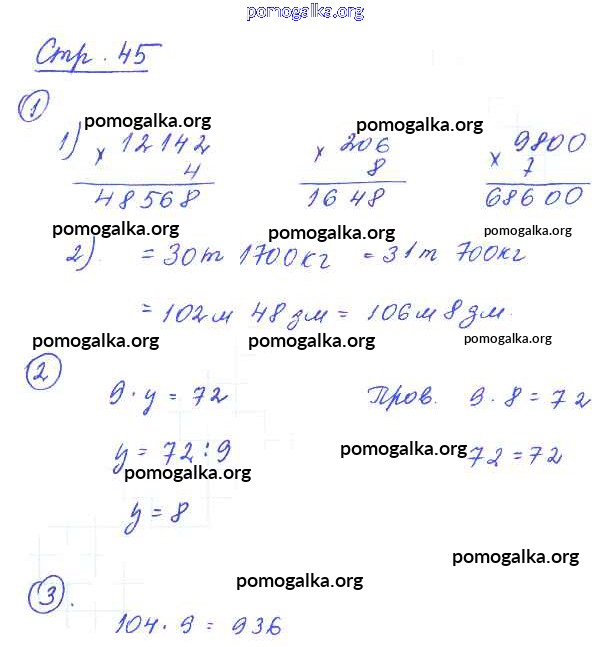 pomogalka.org
Стр. 45
1
pomogalka.org pomogalka.org pomogalka.org
1) × 12142 × 206 × 9800
4 8 7
48568 1648 68600
pomogalka.org pomogalka.org pomogalka.org
2). = 30т 1700кг = 31т 700кг
= 102м 48дм = 106м 8дм.
pomogalka.org pomogalka.org pomogalka.org
2
9 · y = 72 Пров. 9 · 8 = 72
y = 72 : 9 pomogalka.org 72 = 72
pomogalka.org
y = 8
pomogalka.org
pomogalka.org
3.
104 · 9 = 936